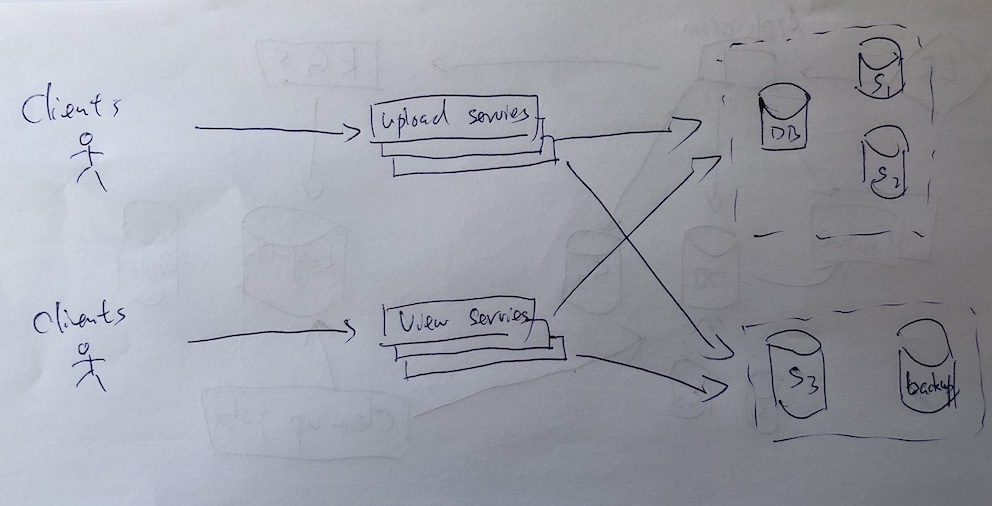 Clients
upload servies
DB
S1
S2
Clients
View servies
S3
backup